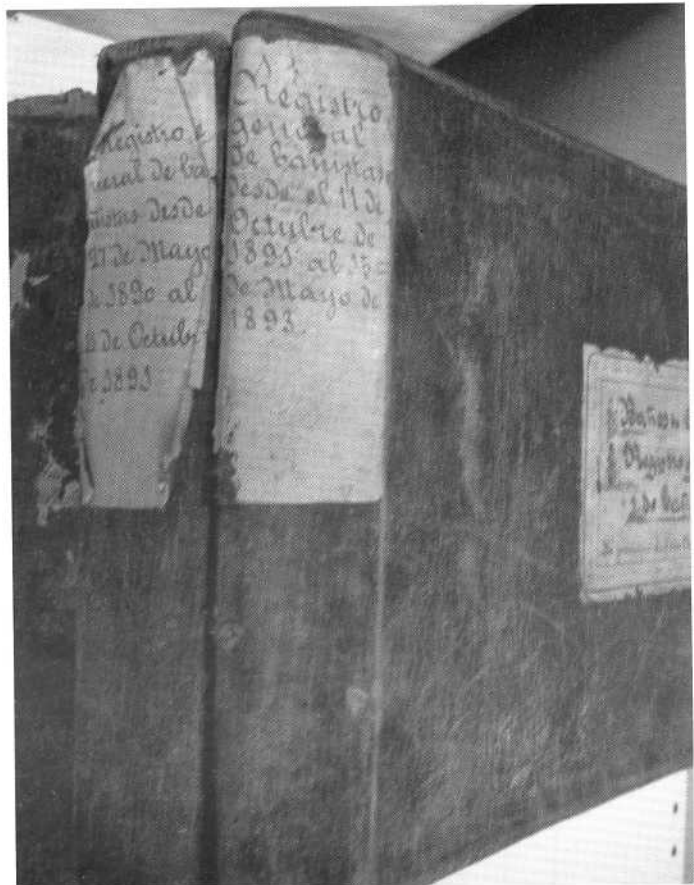 Registro
neral de ba
ñistas desde
27 de Mayo
de 1890 al
de Octub
de 1891
Registro
general
de bañistas
desde el 11 de
Octubre de
1891 al 15
de Mayo de
1893.
Baños
Registro